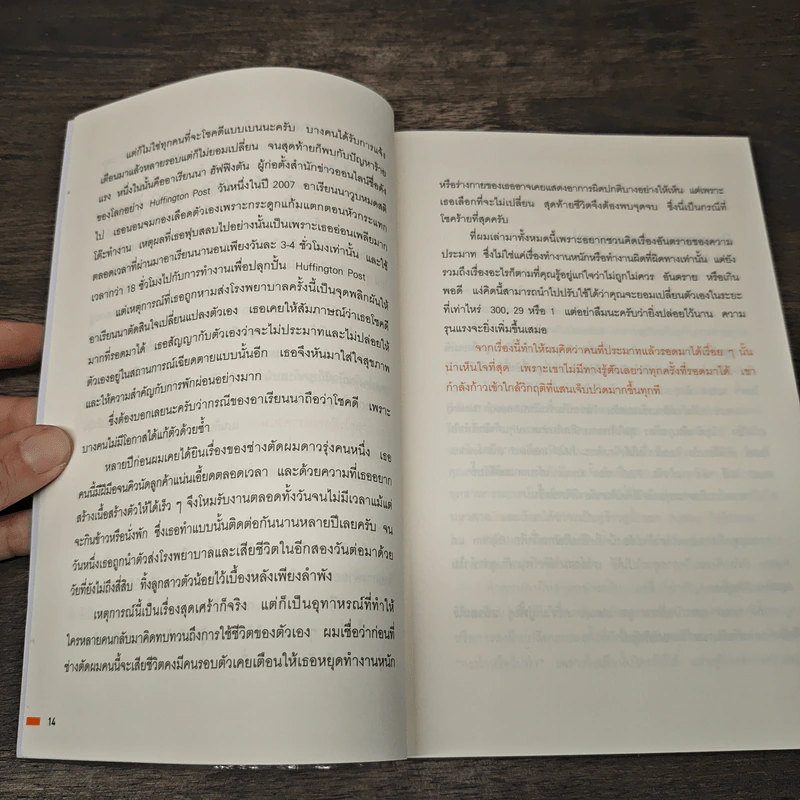 แต่ก็ไม่ใช่ทุกคนที่จะโชคดีแบบเบนนะครับ บางคนได้รับการแจ้ง
เตือนมาแล้วหลายรอบแต่ก็ไม่ยอมเปลี่ยน จนสุดท้ายก็พบกับปัญหาร้าย
แรง หนึ่งในนั้นคืออาเรียนนา ฮัฟฟิงตัน ผู้ก่อตั้งสำนักข่าวออนไลน์ชื่อดัง
ของโลกอย่าง Huffington Post วันหนึ่งในปี 2007 อาเรียนนาวูบหมดสติ
ไป เธอนอนจมกองเลือดตัวเองเพราะกระดูกแก้มแตกตอนหัวกระแทก
โต๊ะทำงาน เหตุผลที่เธอฟุบสลบไปอย่างนั้นเป็นเพราะเธออ่อนเพลียมาก
ตลอดเวลาที่ผ่านมาอาเรียนนานอนเพียงวันละ 3-4 ชั่วโมงเท่านั้น และใช้
เวลากว่า 18 ชั่วโมงไปกับการทำงานเพื่อปลุกปั้น Huffington Post
แต่เหตุการณ์ที่เธอถูกหามส่งโรงพยาบาลครั้งนี้เป็นจุดพลิกผันให้
อาเรียนนาตัดสินใจเปลี่ยนแปลงตัวเอง เธอเคยให้สัมภาษณ์ว่าเธอโชคดี
มากที่รอดมาได้ เธอสัญญากับตัวเองว่าจะไม่ประมาทและไม่ปล่อยให้
ตัวเองอยู่ในสถานการณ์เฉียดตายแบบนั้นอีก เธอจึงหันมาใส่ใจสุขภาพ
และให้ความสำคัญกับการพักผ่อนอย่างมาก
ซึ่งต้องบอกเลยนะครับว่ากรณีของอาเรียนนาถือว่าโชคดี เพราะ
บางคนไม่มีโอกาสได้แก้ตัวด้วยซ้ำ
หลายปีก่อนผมเคยได้ยินเรื่องของช่างตัดผมดาวรุ่งคนหนึ่ง เธอ
คนนี้มีฝีมือจนคิวนัดลูกค้าแน่นเอี้ยดตลอดเวลา และด้วยความที่เธออยาก
สร้างเนื้อสร้างตัวให้ได้เร็ว ๆ จึงโหมรับงานตลอดทั้งวันจนไม่มีเวลาแม้แต่
จะกินข้าวหรือนั่งพัก ซึ่งเธอทำแบบนั้นติดต่อกันนานหลายปีเลยครับ จน
วันหนึ่งเธอถูกนำตัวส่งโรงพยาบาลและเสียชีวิตในอีกสองวันต่อมาด้วย
วัยที่ยังไม่ถึงสี่สิบ ทิ้งลูกสาวตัวน้อยไว้เบื้องหลังเพียงลำพัง
เหตุการณ์นี้เป็นเรื่องสุดเศร้าก็จริง แต่ก็เป็นอุทาหรณ์ที่ทำให้
ใครหลายคนกลับมาคิดทบทวนถึงการใช้ชีวิตของตัวเอง ผมเชื่อว่าก่อนที่
ช่างตัดผมคนนี้จะเสียชีวิตคงมีคนรอบตัวเคยเตือนให้เธอหยุดทำงานหนัก
14
หรือร่างกายของเธออาจเคยแสดงอาการผิดปกติบางอย่างให้เห็น แต่เพราะ
เธอเลือกที่จะไม่เปลี่ยน สุดท้ายชีวิตจึงต้องพบจุดจบ ซึ่งนี่เป็นกรณีที่
โชคร้ายที่สุดครับ
ที่ผมเล่ามาทั้งหมดนี้เพราะอยากชวนคิดเรื่องอันตรายของความ
ประมาท ซึ่งไม่ใช่แค่เรื่องการทำงานหนักหรือทำงานผิดที่ผิดทางเท่านั้น แต่ยัง
รวมถึงเรื่องอะไรก็ตามที่คุณรู้อยู่แก่ใจว่าไม่ถูกไม่ควร อันตราย หรือเกิน
พอดี แง่คิดนี้สามารถนำไปปรับใช้ได้ว่าคุณจะยอมเปลี่ยนตัวเองในระยะ
ที่เท่าไหร่ 300, 29 หรือ 1 แต่อย่าลืมนะครับว่ายิ่งปล่อยไว้นาน ความ
รุนแรงจะยิ่งเพิ่มขึ้นเสมอ
จากเรื่องนี้ทำให้ผมคิดว่าคนที่ประมาทแล้วรอดมาได้เรื่อย ๆ นั้น
น่าเห็นใจที่สุด เพราะเขาไม่มีทางรู้ตัวเลยว่าทุกครั้งที่รอดมาได้ เขา
กำลังก้าวเข้าใกล้วิกฤติที่แสนเจ็บปวดมากขึ้นทุกที